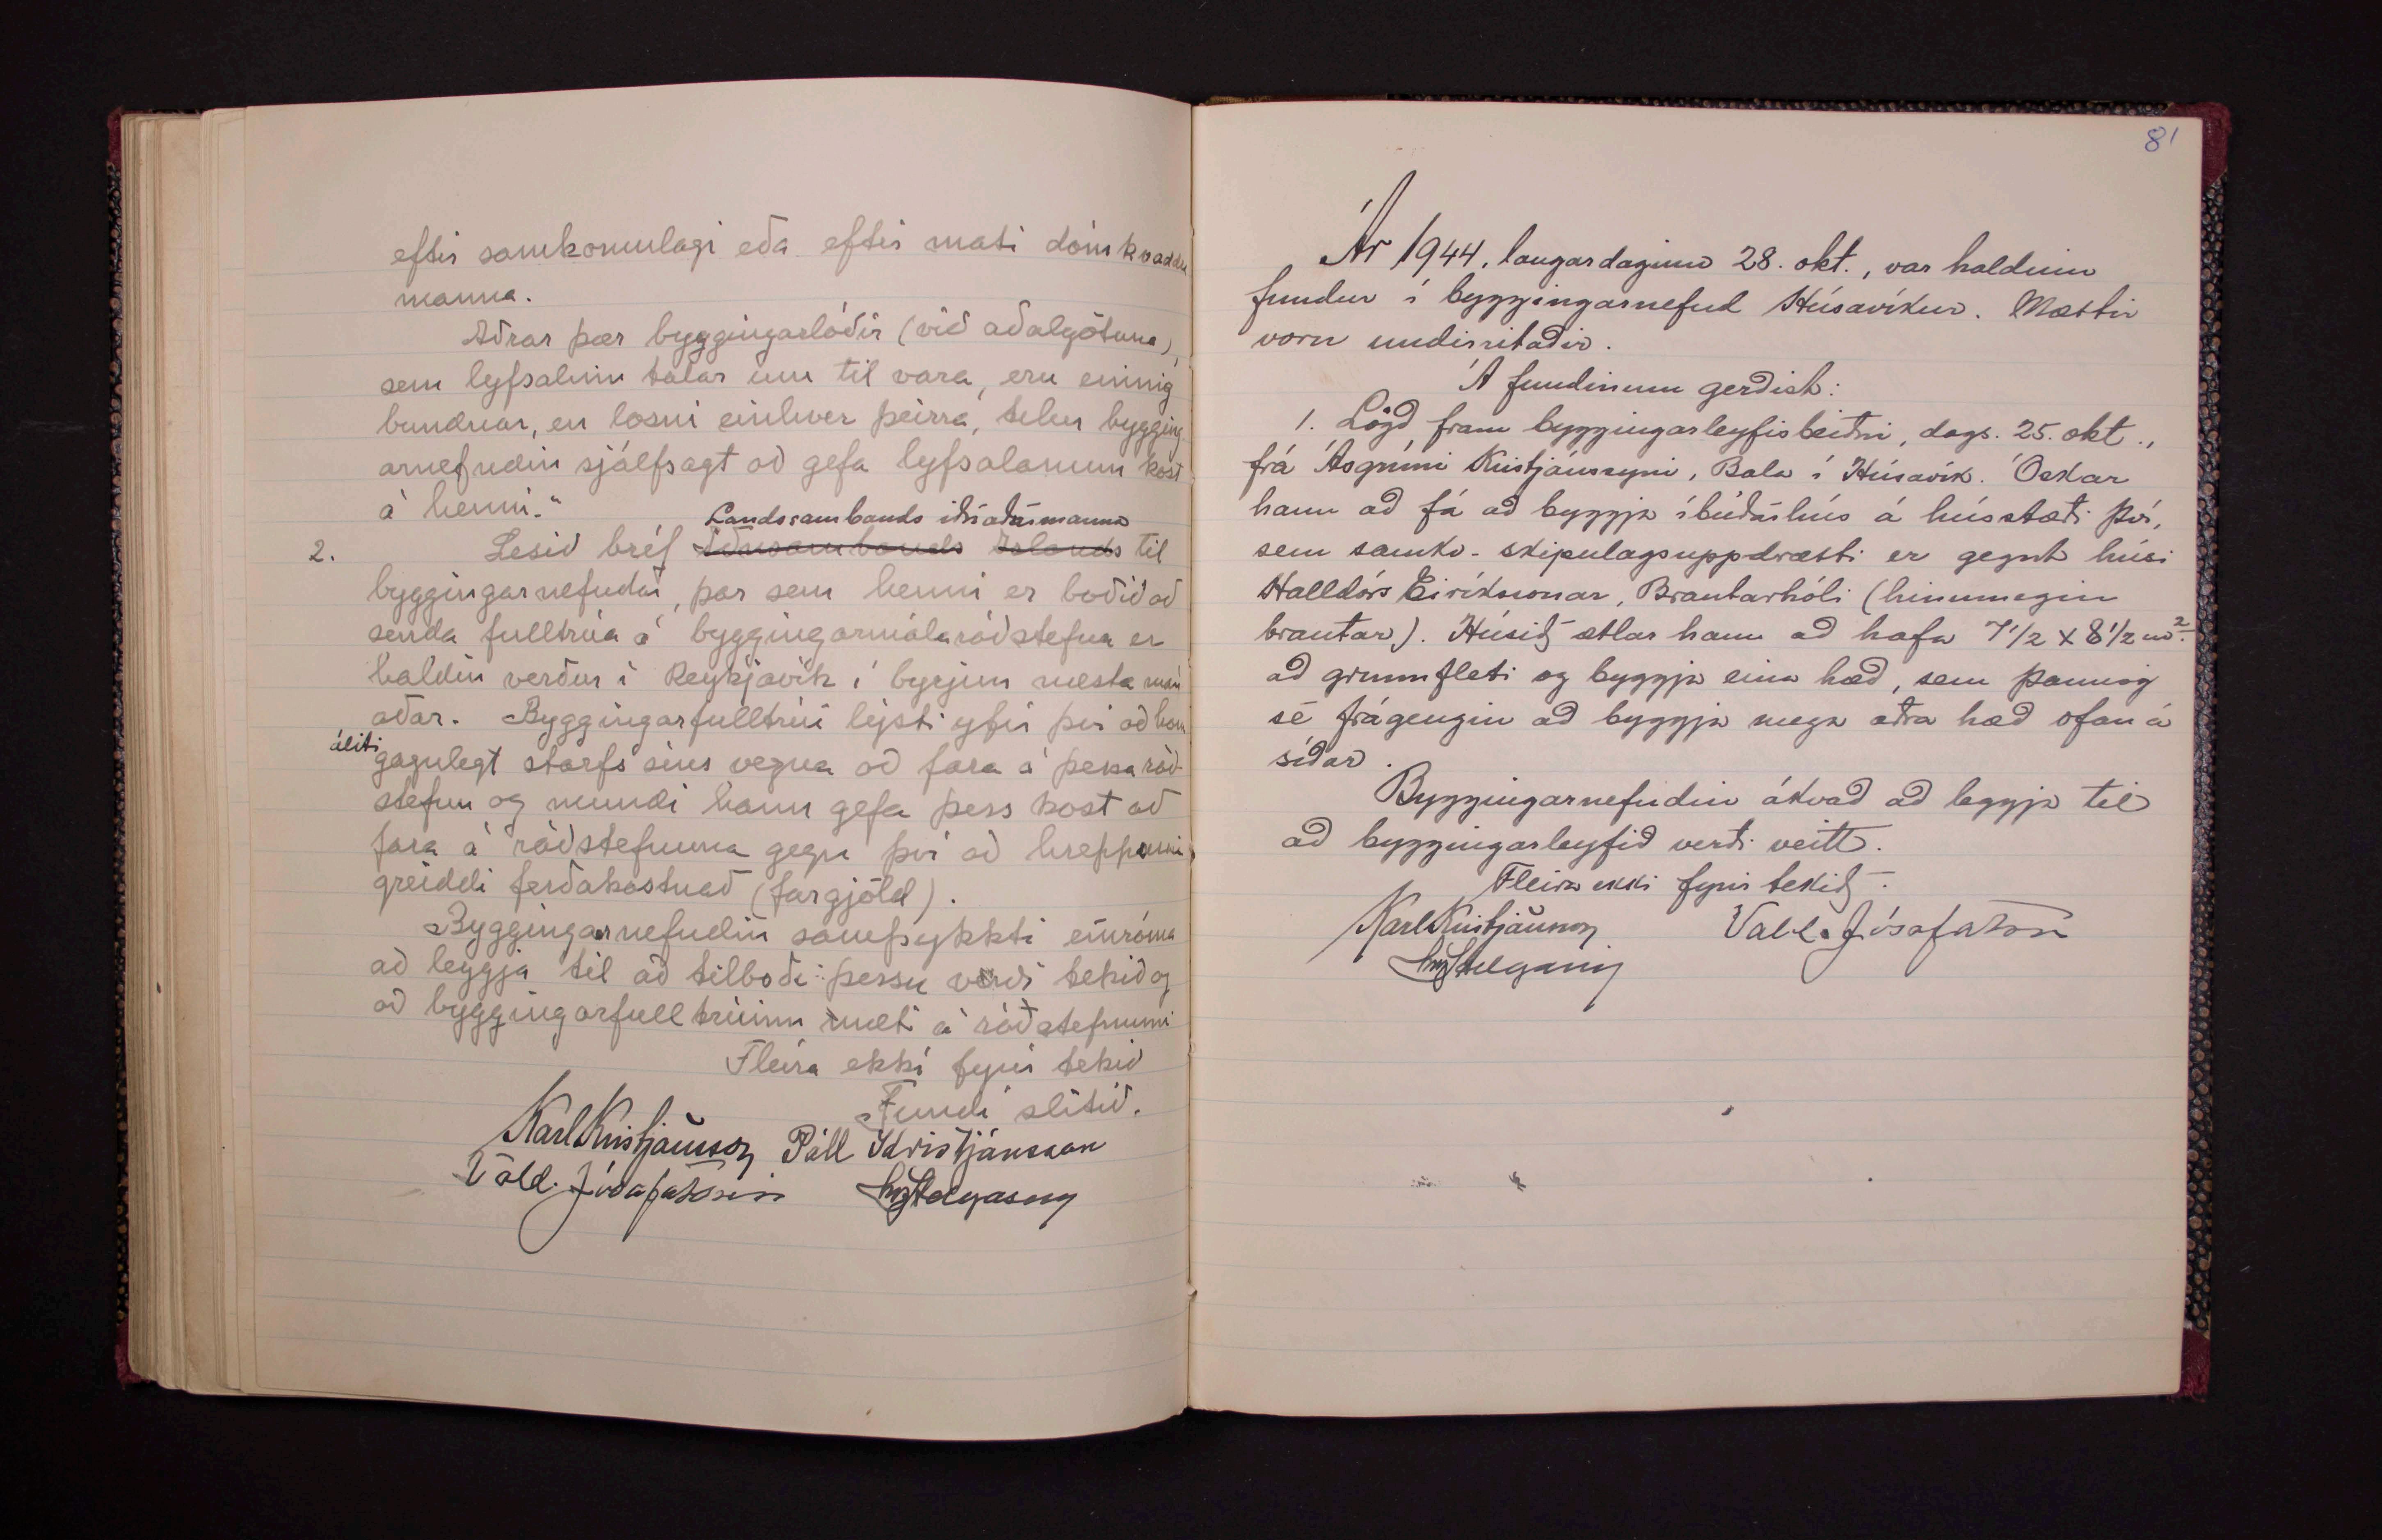 eftir samkomulagi eða eftir mati dómkvaddra
manna.
Aðrar þær byggingarlóðir (við aðalgötuna),
sem lyfsalinn talar um til vara, eru einnig
bundnar, en losni einhver þeirra, telur bygging
arnefndin sjálfsagt að gefa lyfsalanum kost
á henni."
Landssambands iðnaðarmanna
2. Lesið bréf Iðnsambands Islands til
byggingarnefndar, þar sem henni er boðið að
senda fulltrúa á byggingarmálaráðstefnu er
haldin verður í Reykjavík í byrjun næsta mán
aðar. Byggingarfulltrúi lýsti yfir því að hann
áliti gagnlegt starfs síns vegna að fara á þessa ráð-
stefnu og mundi hann gefa þess kost að
fara á ráðstefnuna gegn því að hreppurinn
greiddi ferðakostnað (fargjöld).
Byggingarnefndin samþykkti einróma
að leggja til að tilboði þessu verði tekið og
að byggingarfulltrúinn mæti á ráðstefnunni
Fleira ekki fyrir tekið
Fundi slitið.
Karl Kristjánsson Páll Kristjánsson
Vald. Jósafatsson Helgason
81
Ár 1944, laugardaginn 28. okt., var haldinn
fundur í byggingarnefnd Húsavíkur. Mættir
voru undirritaðir.
Á fundinum gerðist:
1. Lögð fram byggingarleyfisbeiðni, dags. 25. okt.,
frá Ásgrími Kristjánssyni, Bala í Húsavík. Óskar
hann að fá að byggja íbúðarhús á hússtæði því,
sem samkv. skipulagsuppdrætti er gegnt húsi
Halldórs Eiríkssonar, Brautarhóli (hinumegin
brautar). Húsið ætlar hann að hafa 7 1/2 x 8 1/2 m².
að grunnfleti og byggja eina hæð, sem þannig
sé frágengin að byggja mega aðra hæð ofan á
síðar.
Byggingarnefndin ákvað að leggja til
að byggingarleyfið verði veitt.
Fleira ekki fyrir tekið.
Karl Kristjánsson Vald. Jósafatsson
Helgason